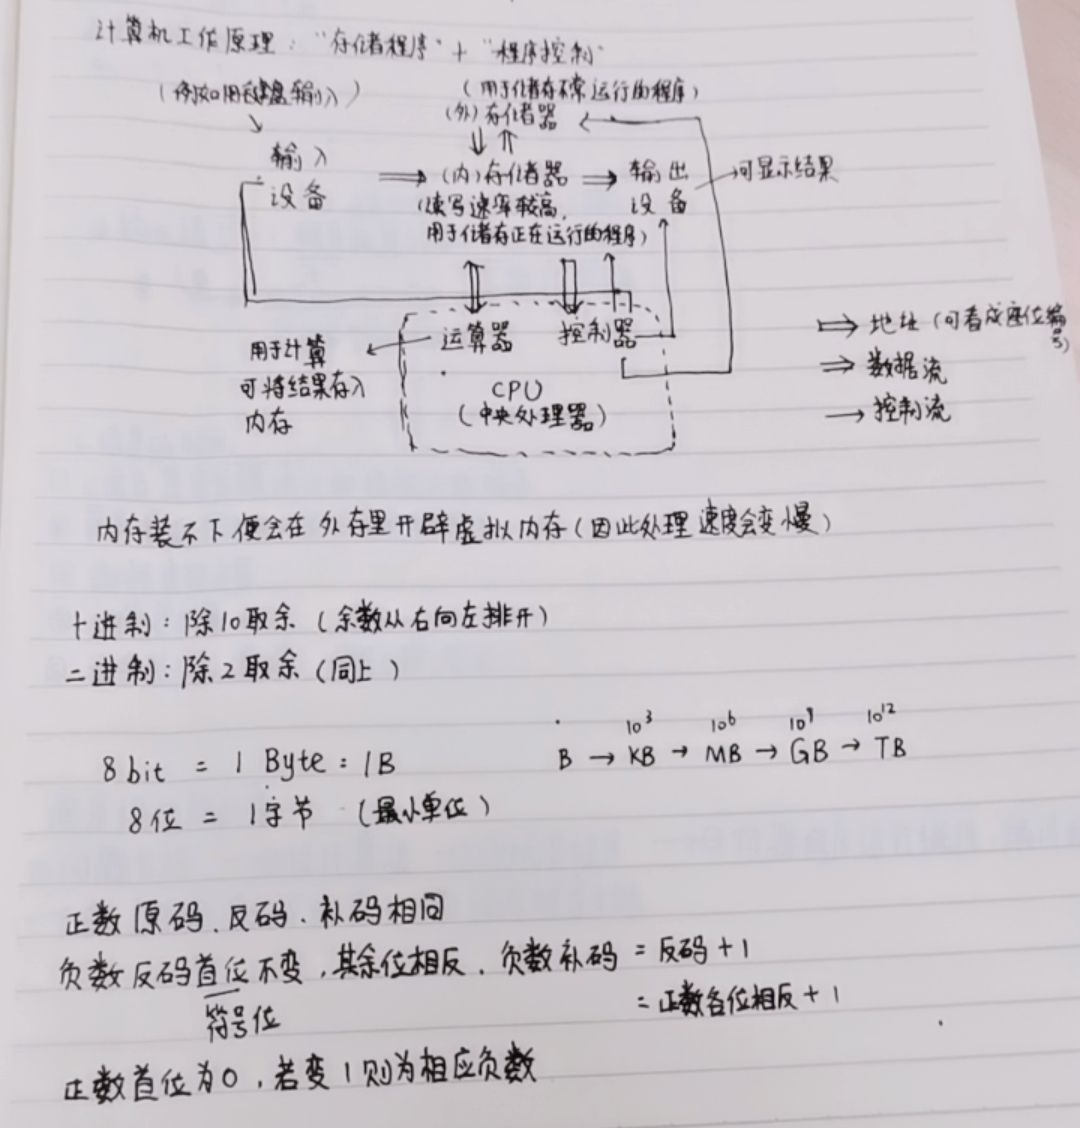 计算机工作原理："存储程序"+"程序控制"
（例如用键盘输入）
（用于储存不常运行的程序）
（外）存储器
输入
设备
（内）存储器
（读写速率较高，
用于储存正在运行的程序）
输出
设备
可显示结果
运算器
控制器
CPU
（中央处理器）
用于计算
可将结果存入
内存
地址（可看成座位编号）
数据流
控制流
内存装不下便会在外存里开辟虚拟内存（因此处理速度会变慢）
十进制：除10取余（余数从右向左排开）
二进制：除2取余（同上）
8bit = 1 Byte = 1B
8位 = 1字节（最小单位）
10³ 10⁶ 10⁹ 10¹²
B → KB → MB → GB → TB
正数原码、反码、补码相同
负数反码首位不变，其余位相反、负数补码 = 反码+1
符号位
= 正数各位相反+1
正数首位为0，若变1则为相应负数